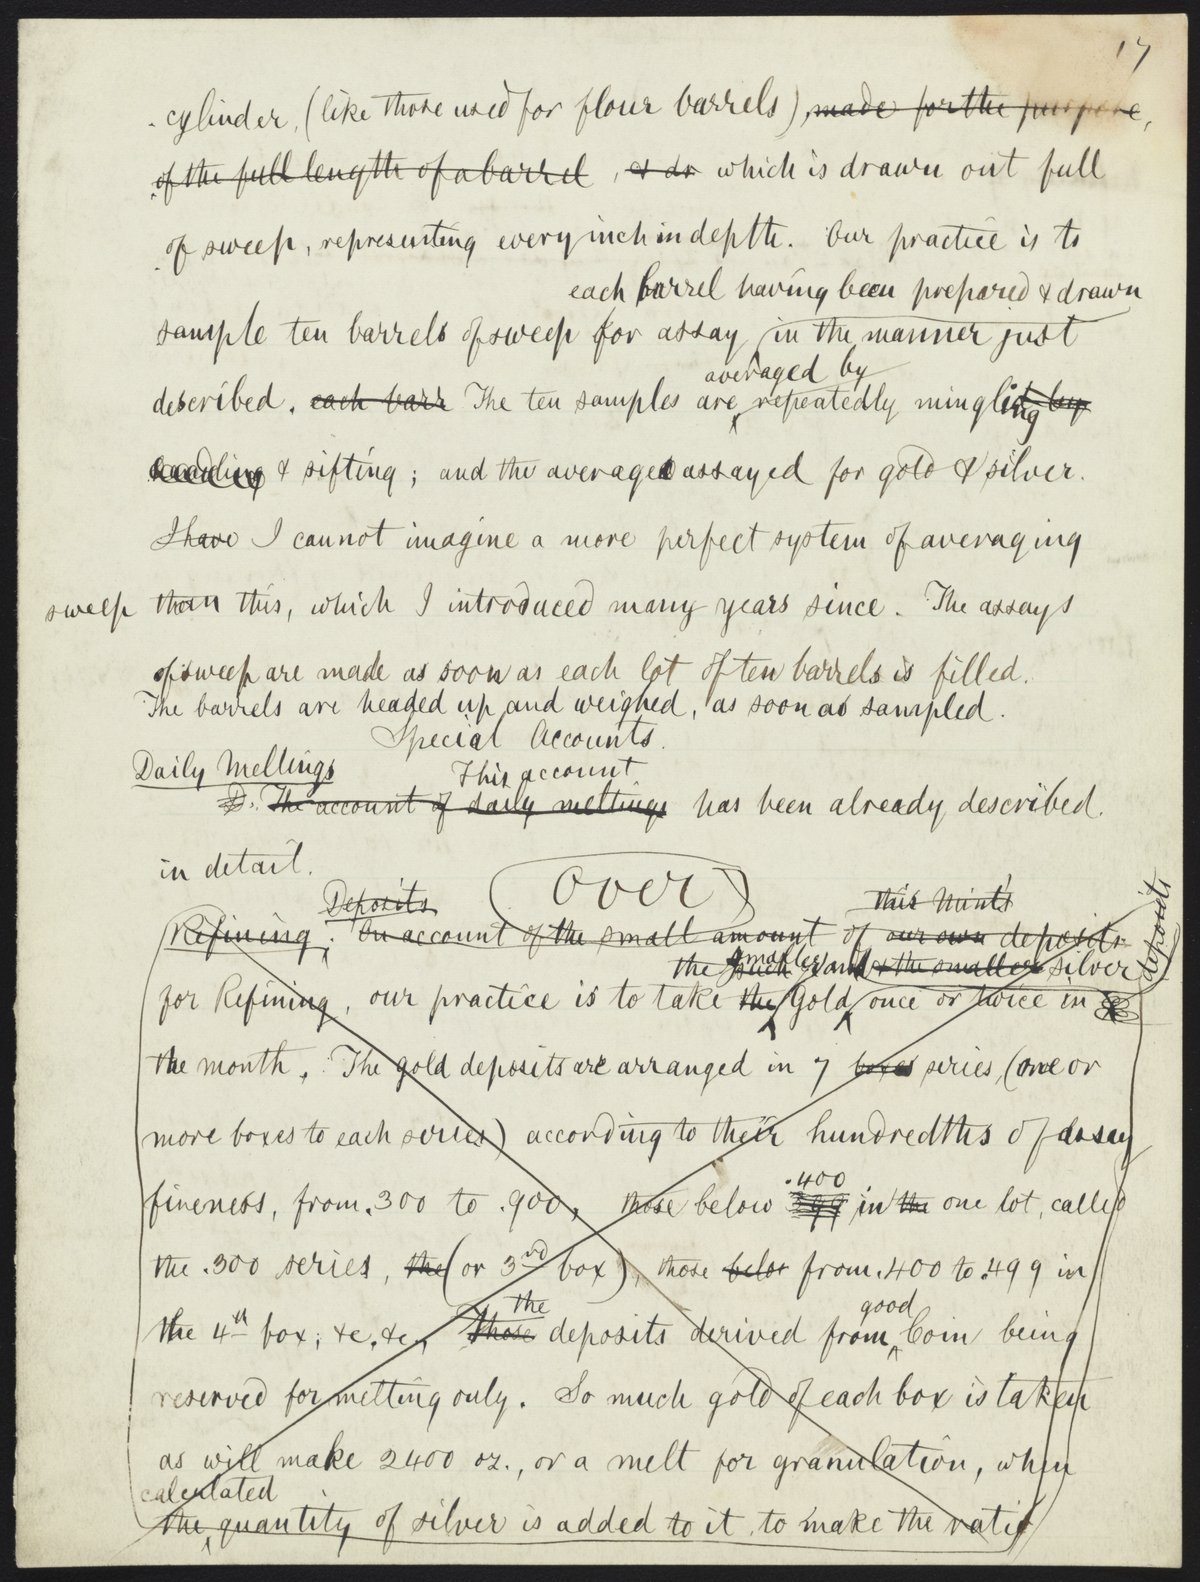 17
cylinder, (like those used for flour barrels), made for the purpose,
of the full length of a barrel, & dr which is drawn out full
of sweep, representing every inch in depth. Our practice is to
each barrel having been prepared & drawn
sample ten barrels of sweep for assay in the manner just
averaged by
described. each barr The ten samples are repeatedly mingling by
& sifting; and the average assayed for gold & silver.
I have I cannot imagine a more perfect system of averaging
sweep than this, which I introduced many years since. The assays
of sweep are made as soon as each lot of ten barrels is filled.
The barrels are headed up and weighed, as soon as sampled.
Special Accounts.
Daily Meltings This account
D. The account of daily meltings has been already described.
in detail.
Over
Deposits this Mint's
Refining. On account of the small amount of our own deposits deposits
the such smaller and & the smaller silver
for Refining, our practice is to take the Gold once or twice in
the month. The gold deposits are arranged in 7 boxes series, (one or
more boxes to each series) according to their hundredths of assay
.400
fineness, from .300 to .900, those below 399 in the one lot, called
the .300 series, the (or 3rd box), those belo from .400 to .499 in
the good
the 4th box, &c, &c., Those deposits derived from Coin being
reserved for melting only. So much gold of each box is taken
as will make 2400 oz., or a melt for granulation, when
calculated
the quantity of silver is added to it, to make the ratio